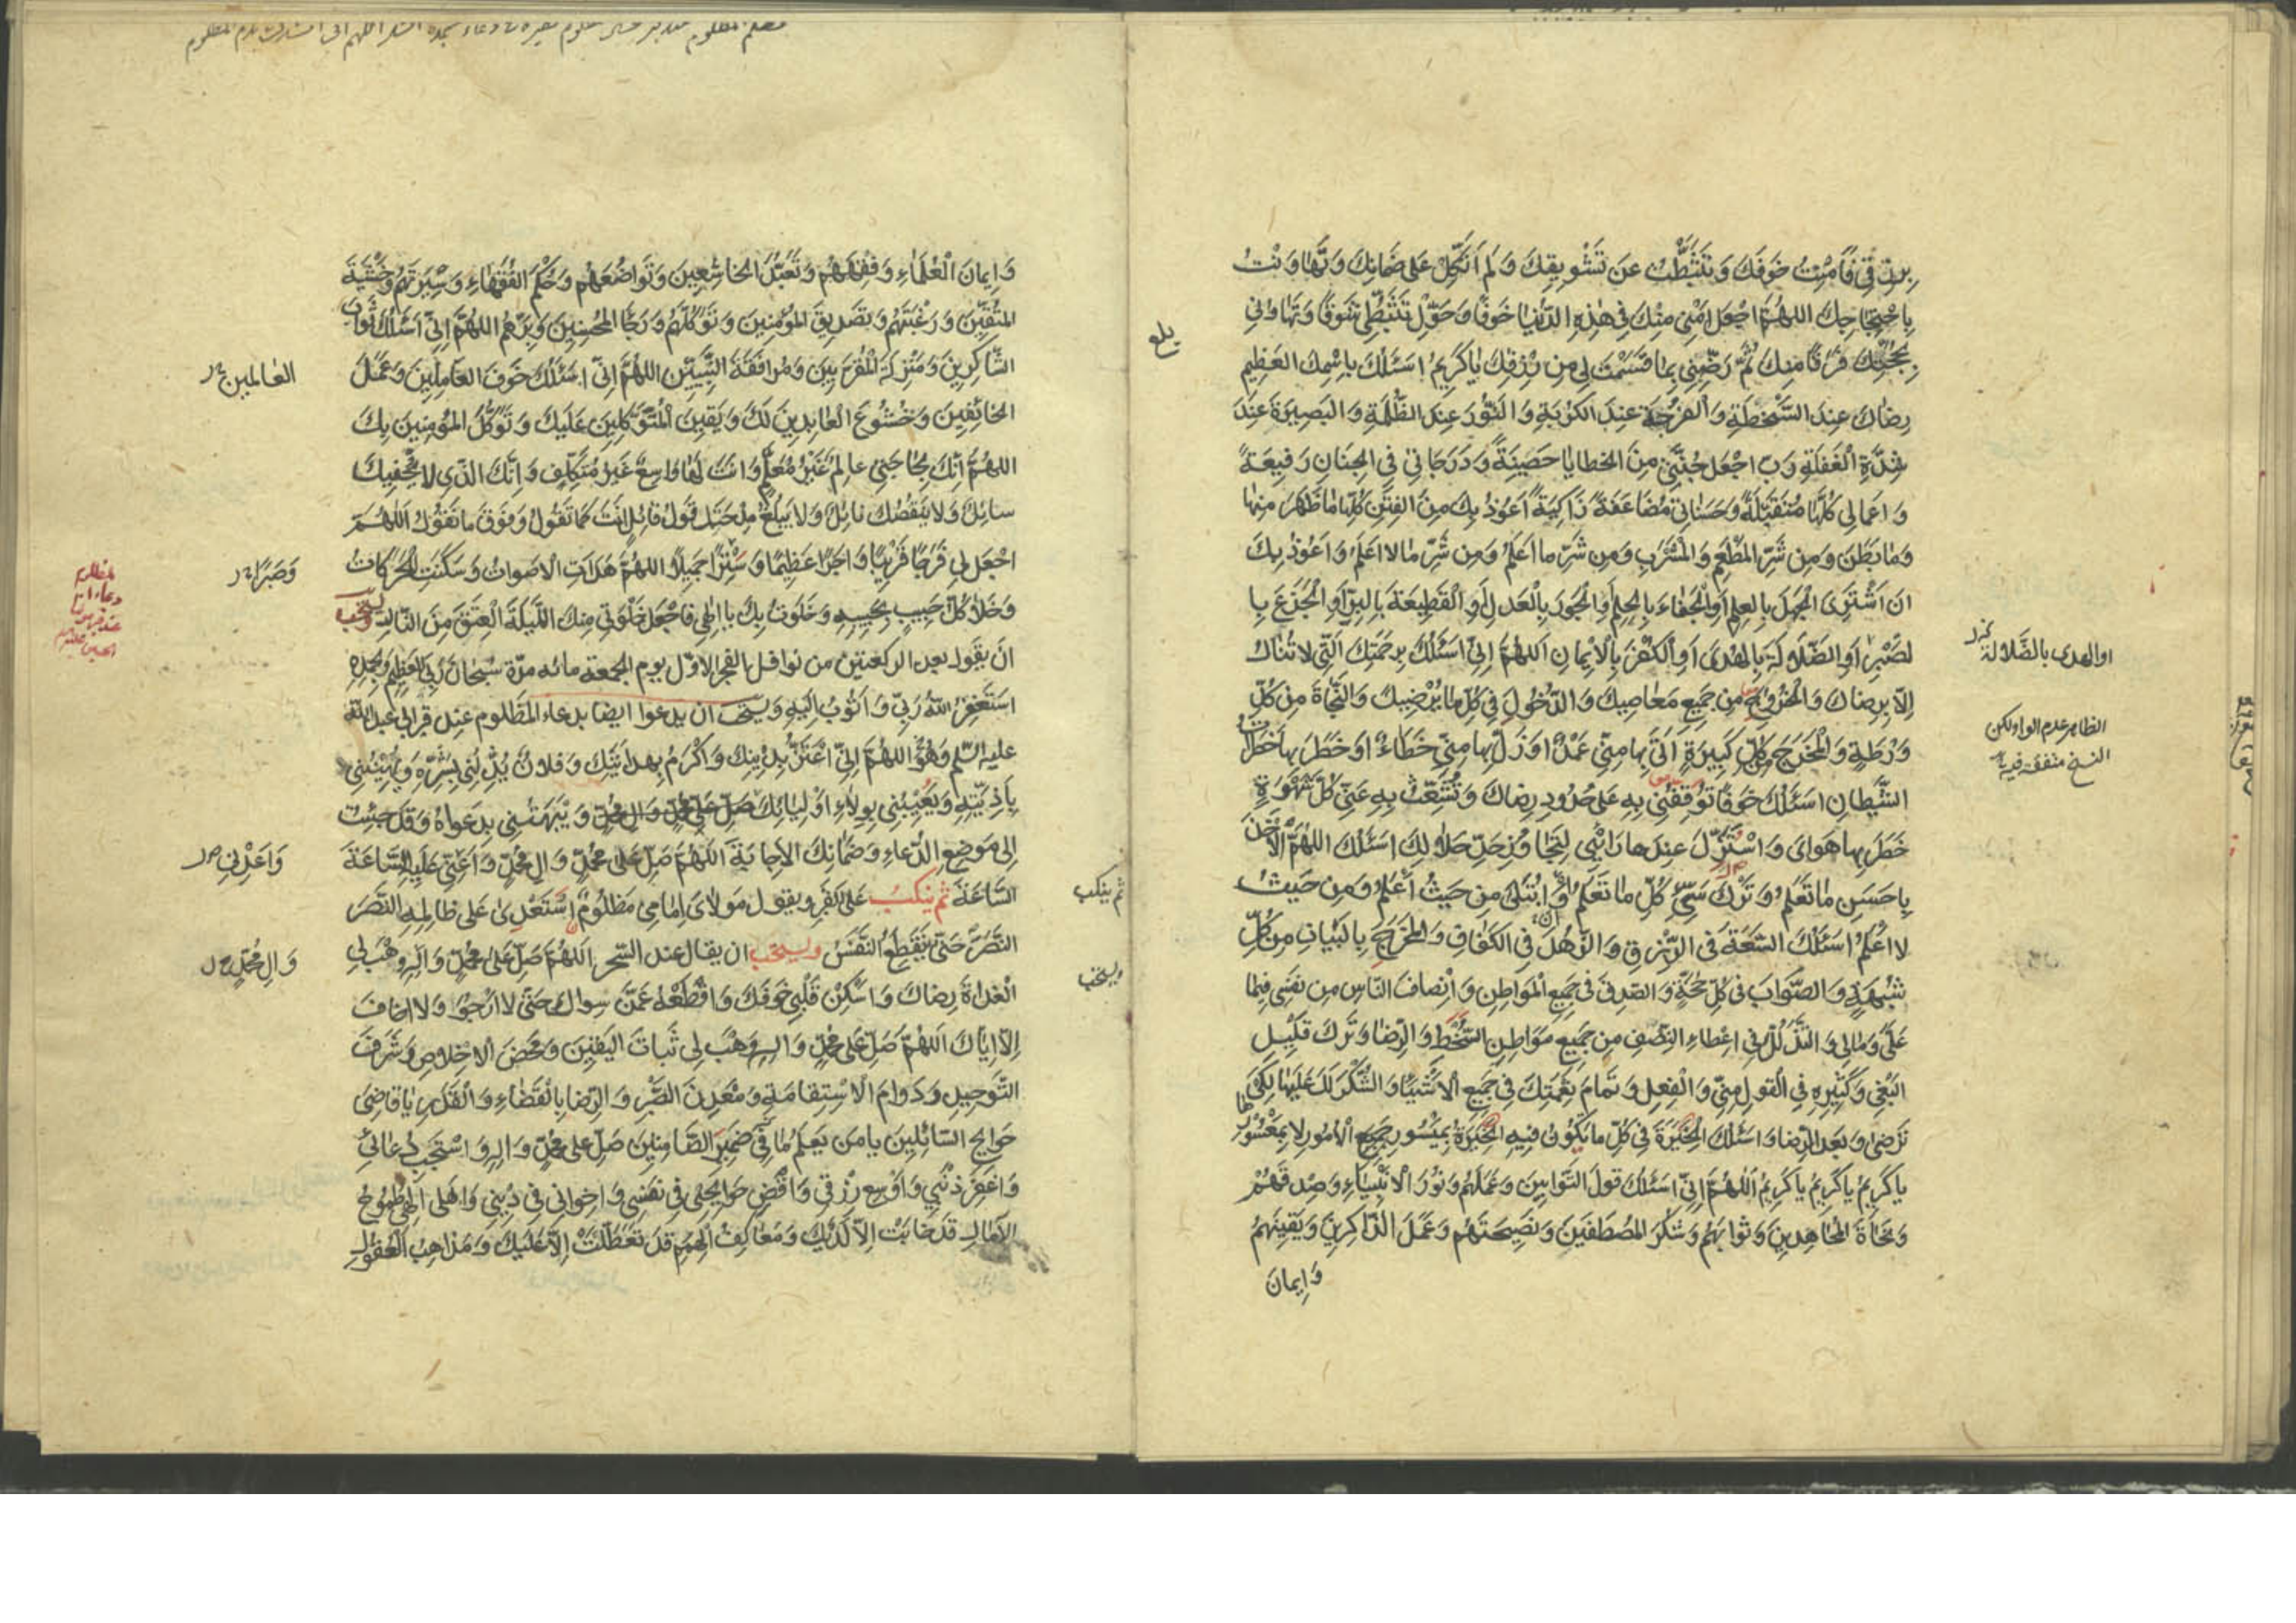 بِرِزْقِي فَأَمِنْتُ خَوْفَكَ وَتَثَبَّطْتُ عَنْ تَشْوِيقِكَ وَلَمْ أَتَّكِلْ عَلَى ضَمَانِكَ وَتَهَاوَنْتُ
بِاحْتِجَاجِكَ اللهُمَّ اجْعَلْ أَمْنِي مِنْكَ فِي هَذِهِ الدُّنْيَا خَوْفًا وَحَوِّلْ تَثَبُّطِي شَوْقًا وَتَهَاوُنِي
بِحُجَّتِكَ فَرَقًا مِنْكَ ثُمَّ رَضِّنِي بِمَا قَسَمْتَ لِي مِنْ رِزْقِكَ يَا كَرِيمُ اسْئَلُكَ بِاسْمِكَ العَظِيمِ
رِضَاكَ عِنْدَ السَّخْطَةِ وَالْفُرْجَةَ عِنْدَ الكُرْبَةِ وَالنُّورَ عِنْدَ الظُّلْمَةِ وَالبَصِيرَةَ عِنْدَ
شِدَّةِ الْغَفْلَةِ رَبِّ اجْعَلْ جُنَّتِي مِنَ الخَطَايَا حَصِينَةً وَدَرَجَاتِي فِي الجِنَانِ رَفِيعَةً
وَاَعْمَالِي كُلَّهَا مُتَقَبَّلَةً وَحَسَنَاتِي مُضَاعَفَةً زَاكِيَةً اَعُوذُ بِكَ مِنَ الفِتَنِ كُلِّهَا مَا ظَهَرَ مِنْهَا
وَمَا بَطَنَ وَمِنْ شَرِّ المَطْعَمِ وَالمَشْرَبِ وَمِنْ شَرِّ مَا اَعْلَمُ وَمِنْ شَرِّ مَا لَا اَعْلَمُ وَاَعُوذُ بِكَ
اَنْ اَشْتَرِيَ الجَهْلَ بِالعِلْمِ اَوِ الْجَفَاءَ بِالحِلْمِ اَوِ الجَوْرَ بِالْعَدْلِ اَوِ الْقَطِيعَةَ بِالبِرِّ اَوِ الْجَزَعَ بِا
لصَّبْرِ اَوِ الضَّلَالَةَ بِالهُدَى اَوِ الْكُفْرَ بِالْاِيمَانِ اَللهُمَّ اِنِّي اَسْئَلُكَ بِرَحْمَتِكَ الَّتِي لَا تُنَالُ
اِلَّا بِرِضَاكَ وَالْخُرُوجَ مِنْ جَمِيعِ مَعَاصِيكَ وَالدُّخُولَ فِي كُلِّ مَا يُرْضِيكَ وَالنَّجَاةَ مِنْ كُلِّ
وَرْطَةٍ وَالْمَخْرَجَ مِنْ كُلِّ كَبِيرَةٍ اَتَى بِهَا مِنِّي عَمْدٌ اَوْ زَلَّ بِهَا مِنِّي خَطَاءٌ اَوْ خَطَرَ بِهَا خَطَرَاتُ
الشَّيْطَانِ اَسْئَلُكَ خَوْفًا تُوقِفُنِي بِهِ عَلَى حُدُودِ رِضَاكَ وَتُشَعِّثُ بِهِ عَنِّي كُلَّ شَهْوَةٍ
خَطَرَ بِهَا هَوَايَ وَاسْتَزَلَّ عِنْدَهَا رَائِي لِتَجَاوُزِ حَدِّ حَلَالِكَ اَسْئَلُكَ اللهُمَّ الْاَخْذَ
بِاَحْسَنِ مَا تَعْلَمُ وَتَرْكَ سَيِّئِ كُلِّ مَا تَعْلَمُ اَوْ اَنْ اُبْتَلَى مِنْ حَيْثُ اَعْلَمُ وَمِنْ حَيْثُ
لَا اَعْلَمُ اَسْئَلُكَ السَّعَةَ فِي الرِّزْقِ وَالزُّهْدَ فِي الكَفَافِ وَالْمَخْرَجَ بِالبَيَانِ مِنْ كُلِّ
شُبْهَةٍ وَالصَّوَابَ فِي كُلِّ حُجَّةٍ وَالصِّدْقَ فِي جَمِيعِ الْمَوَاطِنِ وَاِنْصَافَ النَّاسِ مِنْ نَفْسِي فِيمَا
عَلَيَّ وَمَا لِي وَالتَّذَلُّلَ فِي اِعْطَاءِ النَّصَفِ مِنْ جَمِيعِ مَوَاطِنِ السَّخَطِ وَالرِّضَا وَتَرْكَ قَلِيلِ
البَغْيِ وَكَثِيرِهِ فِي الْقَوْلِ مِنِّي وَالْفِعْلِ وَتَمَامَ نِعْمَتِكَ فِي جَمِيعِ الْاَشْيَاءِ وَالشُّكْرَ لَكَ عَلَيْهَا لِكَيْ
تَرْضَى وَبَعْدَ الرِّضَا وَاَسْئَلُكَ الْخِيَرَةَ فِي كُلِّ مَا يَكُونُ فِيهِ الْخِيَرَةُ بِمَيْسُورِ جَمِيعِ الْاُمُورِ لَا بِمَعْسُورِهَا
يَا كَرِيمُ يَا كَرِيمُ يَا كَرِيمُ اَللهُمَّ اِنِّي اَسْئَلُكَ قَوْلَ التَّوَّابِينَ وَعَمَلَهُمْ وَنُورَ الْاَنْبِيَاءِ وَصِدْقَهُمْ
وَنَجَاةَ المُجَاهِدِينَ وَثَوَابَهُمْ وَشُكْرَ المُصْطَفَيْنَ وَنَصِيحَتَهُمْ وَعَمَلَ الذَّاكِرِينَ وَيَقِينَهُمْ
وَاِيمَانَ
اَوِ الهُدَى بالضَّلَالَة
الظاهر عدم الواو لكن
النسخ متفقة فيه
بلغ
وَاِيمَانَ الْعُلَمَاءِ وَفِقْهَهُمْ وَتَعَبُّدَ الخَاشِعِينَ وَتَوَاضُعَهُمْ وَحُكْمَ الفُقَهَاءِ وَسِيرَتَهُمْ وَخَشْيَةَ
المُتَّقِينَ وَرَغْبَتَهُمْ وَتَصْدِيقَ المُؤْمِنِينَ وَتَوَكُّلَهُمْ وَرَجَاءَ المُحْسِنِينَ وَبِرَّهُمْ اللهُمَّ اِنِّي اَسْئَلُكَ ثَوَابَ
الشَّاكِرِينَ وَمَنْزِلَةَ المُقَرَّبِينَ وَمُرَافَقَةَ النَّبِيِّينَ اللهُمَّ اِنِّي اَسْئَلُكَ خَوْفَ العَامِلِينَ وَعَمَلَ
الخَائِفِينَ وَخُشُوعَ الْعَابِدِينَ لَكَ وَيَقِينَ الْمُتَوَكِّلِينَ عَلَيْكَ وَتَوَكُّلَ المُؤْمِنِينَ بِكَ
اللهُمَّ اِنَّكَ بِحَاجَتِي عَالِمٌ غَيْرُ مُعَلَّمٍ وَاَنْتَ لَهَا وَاسِعٌ غَيْرُ مُتَكَلِّفٍ وَاِنَّكَ الَّذِي لَا يُحْفِيكَ
سَائِلٌ وَلَا يَنْقُصُكَ نَائِلٌ وَلَا يَبْلُغُ مِدْحَتَكَ قَوْلُ قَائِلٍ اَنْتَ كَمَا تَقُولُ وَفَوْقَ مَا نَقُولُ اَللهُمَّ
اجْعَلْ لِي فَرَجًا قَرِيبًا وَاَجْرًا عَظِيمًا وَسِتْرًا جَمِيلًا اللهُمَّ هَدَأَتِ الْاَصْوَاتُ وَسَكَنَتِ الحَرَكَاتُ
وَخَلَا كُلُّ حَبِيبٍ بِحَبِيبِهِ وَخَلَوْتُ بِكَ يَا اِلَهِي فَاجْعَلْ خَلْوَتِي مِنْكَ اللَّيْلَةَ الْعِتْقَ مِنَ النَّارِ ويستحب
ان يقول بعد الركعتين من نوافل الفجر الاول يوم الجمعة مائه مرّة سُبْحَانَ رَبِّيَ العَظِيمِ وَبِحَمْدِهِ
اَسْتَغْفِرُ اللهَ رَبِّي وَاَتُوبُ اِلَيْهِ ويستحب ان يدعوا ايضا بدعاء المظلوم عند قبر ابي عبد الله
عليه السّلم وَهُوَ اللهُمَّ اِنِّي اَعْتَزُّ بِدِينِكَ وَاَكْرُمُ بِهِدَايَتِكَ وَفُلَانٌ يُذِلُّنِي بِشَرِّهِ وَيُهِينُنِي
بِاَذِيَّتِهِ وَيَعِيبُنِي بِوِلَاءِ اَوْلِيَائِكَ صَلِّ عَلَى مُحَمَّدٍ وَالِ مُحَمَّدٍ وَيَبْهَتُنِي بِدَعْوَاهُ وَقَدْ جِئْتُ
اِلَى مَوْضِعِ الدُّعَاءِ وَضَمَانِكَ الْاِجَابَةَ اَللهُمَّ صَلِّ عَلَى مُحَمَّدٍ وَالِ مُحَمَّدٍ وَاَعِنِّي عَلَيْهِ السَّاعَةَ
السَّاعَةَ ثم ينكب على القبر ويقول مَوْلَايَ اِمَامِي مَظْلُومٌ اسْتَعْدَى عَلَى ظَالِمِهِ النَّصْرَ
النَّصْرَ حَتَّى يَنْقَطِعَ النَّفَسُ ويستحب ان يقال عند السّحر اَللهُمَّ صَلِّ عَلَى مُحَمَّدٍ وَالِهِ وَهَبْ لِي
الْغَدَاةَ رِضَاكَ وَاَسْكِنْ قَلْبِي خَوْفَكَ وَاقْطَعْهُ عَمَّنْ سِوَاكَ حَتَّى لَا اَرْجُوَ وَلَا اَخَافَ
اِلَّا اِيَّاكَ اَللهُمَّ صَلِّ عَلَى مُحَمَّدٍ وَالِهِ وَهَبْ لِي ثَبَاتَ اليَقِينِ وَمَحْضَ الْاِخْلَاصِ وَشَرَفَ
التَّوْحِيدِ وَدَوَامَ الْاِسْتِقَامَةِ وَمَعْدِنَ الصَّبْرِ وَالرِّضَا بِالْقَضَاءِ وَالْقَدَرِ يَا قَاضِيَ
حَوَائِجِ السَّائِلِينَ يَا مَنْ يَعْلَمُ مَا فِي ضَمِيرِ الصَّامِتِينَ صَلِّ عَلَى مُحَمَّدٍ وَالِهِ وَاسْتَجِبْ دُعَائِي
وَاغْفِرْ ذَنْبِي وَاَوْسِعْ رِزْقِي وَاقْضِ حَوَائِجِي فِي نَفْسِي وَاِخْوَانِي فِي دِينِي وَاَهْلِي اِلَهِي طُمُوحُ
الْآمَالِ قَدْ خَابَتْ اِلَّا لَدَيْكَ وَمَعَاكِفُ الْهِمَمِ قَدْ تَعَطَّلَتْ اِلَّا عَلَيْكَ وَمَذَاهِبُ الْعُقُولِ
العَالمِينَ
وَصَبْرًا
وَاَعْدِنِي
وَالِ مُحَمَّدٍ
ثم ينكب
ويستحب